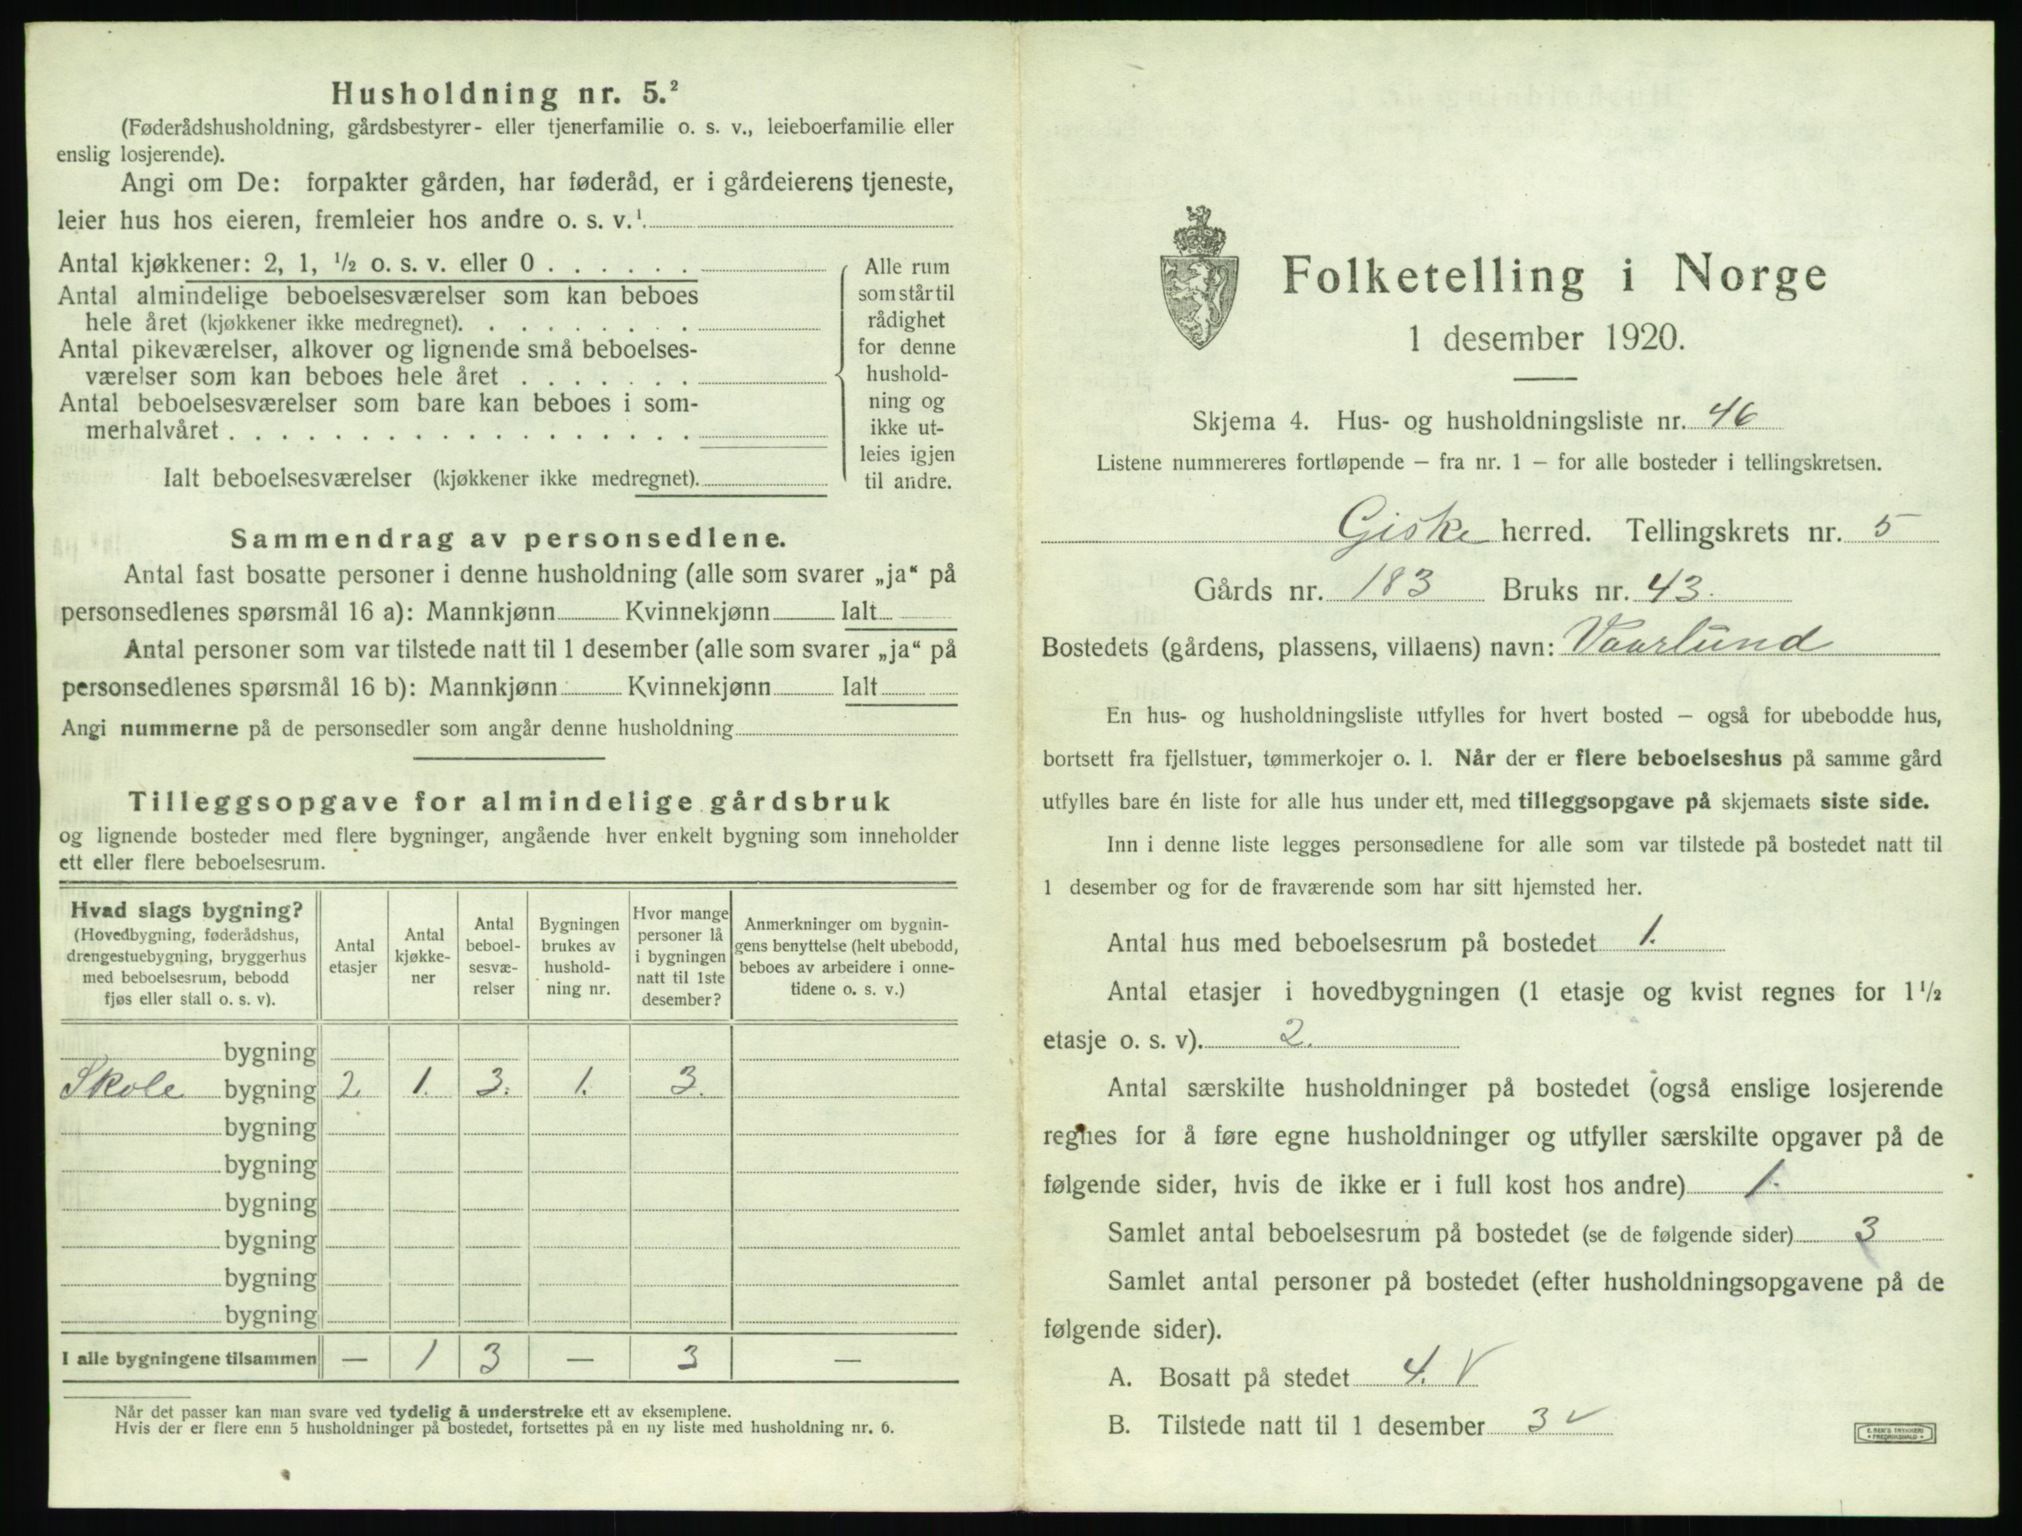 Husholdning nr. 5.²
(Føderådshusholdning, gårdsbestyrer- eller tjenerfamilie o. s. v., leieboerfamilie eller
enslig losjerende).
Angi om De: forpakter gården, har føderåd, er i gårdeierens tjeneste,
leier hus hos eieren, fremleier hos andre o. s. v.¹
Antal kjøkkener: 2, 1, ½ o. s. v. eller 0 . . . . . .
Antal almindelige beboelsesværelser som kan beboes
hele året (kjøkkener ikke medregnet). . . . . . . . .
Antal pikeværelser, alkover og lignende små beboelses-
værelser som kan beboes hele året . . . . . . .
Antal beboelsesværelser som bare kan beboes i som-
merhalvåret . . . . . . . . . . . . . . . . . .
Ialt beboelsesværelser (kjøkkener ikke medregnet).
Alle rum
som står til
rådighet
for denne
hushold-
ning og
ikke ut-
leies igjen
til andre.
Sammendrag av personsedlene.
Antal fast bosatte personer i denne husholdning (alle som svarer „ja“ på
personsedlenes spørsmål 16 a): Mannkjønn Kvinnekjønn Ialt
Antal personer som var tilstede natt til 1 desember (alle som svarer „ja“ på
personsedlenes spørsmål 16 b): Mannkjønn Kvinnekjønn Ialt
Angi nummerne på de personsedler som angår denne husholdning
Tilleggsopgave for almindelige gårdsbruk
og lignende bosteder med flere bygninger, angående hver enkelt bygning som inneholder
ett eller flere beboelsesrum.
Hvad slags bygning?
(Hovedbygning, føderådshus,
drengestuebygning, bryggerhus
med beboelsesrum, bebodd
fjøs eller stall o. s. v).
Antal
etasjer
Antal
kjøkke-
ner
Antal
beboel-
sesvæ-
relser
Bygningen
brukes av
hushold-
ning nr.
Hvor mange
personer lå
i bygningen
natt til 1ste
desember?
Anmerkninger om bygnin-
gens benyttelse (helt ubebodd,
beboes av arbeidere i onne-
tidene o. s. v.)
bygning
Skole bygning 2 1. 3. 1. 3.
bygning
bygning
bygning
bygning
bygning
bygning
I alle bygningene tilsammen — 1 3 — 3 —
Når det passer kan man svare ved tydelig å understreke ett av eksemplene.
Hvis der er flere enn 5 husholdninger på bostedet, fortsettes på en ny liste med husholdning nr. 6.
Folketelling i Norge
1 desember 1920.
Skjema 4. Hus- og husholdningsliste nr. 46
Listene nummereres fortløpende — fra nr. 1 — for alle bosteder i tellingskretsen.
Giske herred. Tellingskrets nr. 5
Gårds nr. 183 Bruks nr. 43.
Bostedets (gårdens, plassens, villaens) navn: Vaarlund
En hus- og husholdningsliste utfylles for hvert bosted — også for ubebodde hus,
bortsett fra fjellstuer, tømmerkojer o. l. Når der er flere beboelseshus på samme gård
utfylles bare én liste for alle hus under ett, med tilleggsopgave på skjemaets siste side.
Inn i denne liste legges personsedlene for alle som var tilstede på bostedet natt til
1 desember og for de fraværende som har sitt hjemsted her.
Antal hus med beboelsesrum på bostedet 1.
Antal etasjer i hovedbygningen (1 etasje og kvist regnes for 1½
etasje o. s. v). 2.
Antal særskilte husholdninger på bostedet (også enslige losjerende
regnes for å føre egne husholdninger og utfyller særskilte opgaver på de
følgende sider, hvis de ikke er i full kost hos andre) 1.
Samlet antal beboelsesrum på bostedet (se de følgende sider) 3
Samlet antal personer på bostedet (efter husholdningsopgavene på de
følgende sider).
A. Bosatt på stedet 4. V
B. Tilstede natt til 1 desember 3 v